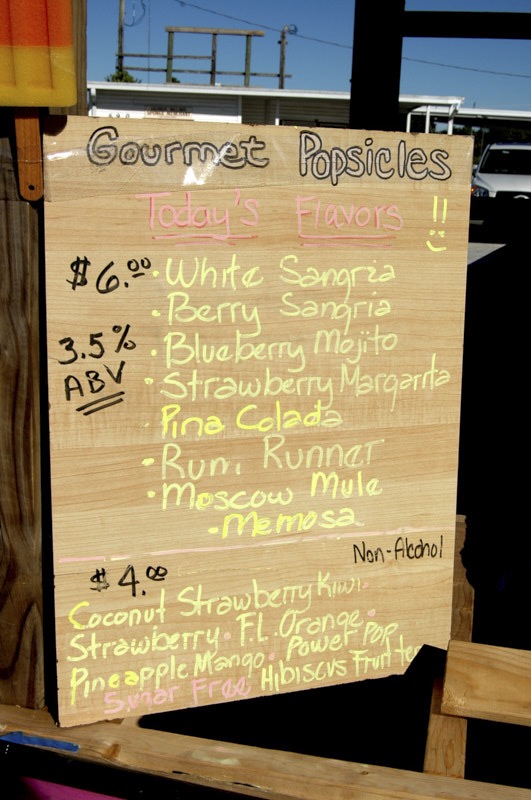 Gourmet Popsicles
Today's Flavors !!
$6.00
· White Sangria
· Berry Sangria
3.5%
ABV
· Blueberry Mojito
· Strawberry Margarita
· Pina Colada
· Rum Runner
· Moscow Mule
- Memosa
Non-Alcohol
$4.00
Coconut Strawberry Kiwi
Strawberry · F.L. Orange ·
Pineapple Mango · Power Pop
Sugar Free Hibiscus